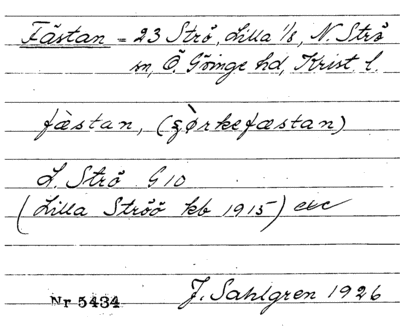 Fästan = 23 Strö, Lilla 1/8, N. Strö
sn, Ö. Göinge hd, Krist l.
fæ̀stan, (ʒø̀rkefæstan)
L. Strö G 10
(Lilla Ströö kb 1915)
Nr 5434 J. Sahlgren 1926